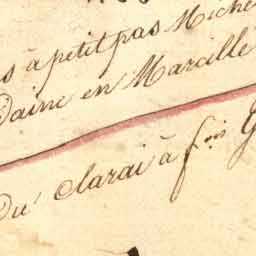 à petit pas Miche
Daine en Marcillé
Du clarai à fois G